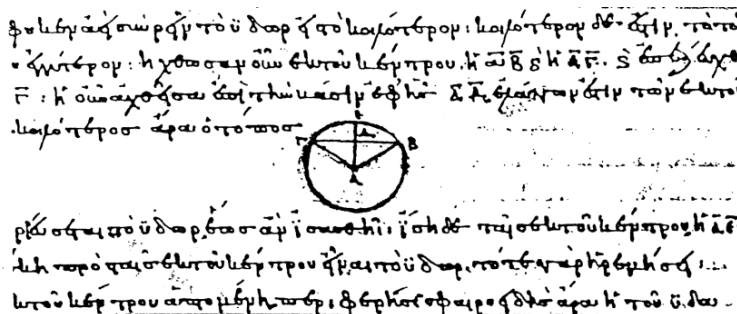 φυκεν ἀεὶ συρρεῖν τὸ ὕδωρ εἰς τὸ κοιλότερον: κοιλότερον δέ ἐστιν τὸ τοῦ
ἐγγύτερον: ἤχθωσαν οὖν ἐκ τοῦ κέντρου ἡ ΑΒ καὶ ἡ ΑΓ. καὶ ἐπεζεύχθ
Γ: ἡ οὖν ἀχθεῖσα ἐπὶ τὴν βάσιν ἐφ' ἧς ΑΔ, ἐλάττων ἐστὶν τῶν ἐκ τοῦ
κοιλότερος ἄρα ὁ τόπος
Ε
Δ
Γ Β
Α
ρεύσεται τὸ ὕδωρ, ἕως ἂν ἰσασθῆι: ἴση δὲ ταῖς ἐκ τοῦ κέντρου, ἡ ΑΕ
κη πρὸς ταῖς ἐκ τοῦ κέντρου εἶναι τὸ ὕδωρ. τότε γὰρ ἠρεμήσει:
κ τοῦ κέντρου ἁπτομένη περιφερής: σφαιροειδὴς ἄρα ἡ τοῦ ὕδα